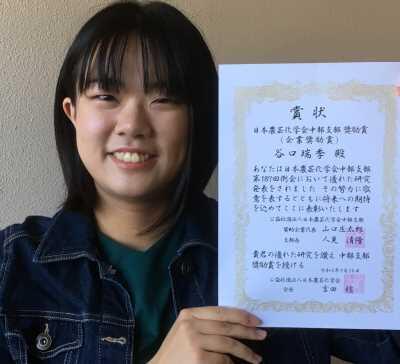 賞状
日本農芸化学会中部支部 奨励賞
（企業奨励賞）
谷口瑞季 殿
あなたは日本農芸化学会中部支部
第187回例会において優れた研究
発表をされました その努力に敬
意を表するとともに将来への期待
を込めてここに表彰いたします
公益社団法人日本農芸化学会中部支部
賛助企業代表 山口庄太郎
支部長 人見清隆
貴君の優れた研究を讃え 中部支部
奨励賞を授ける
公益社団法人日本農芸化学会
会長 吉田稔